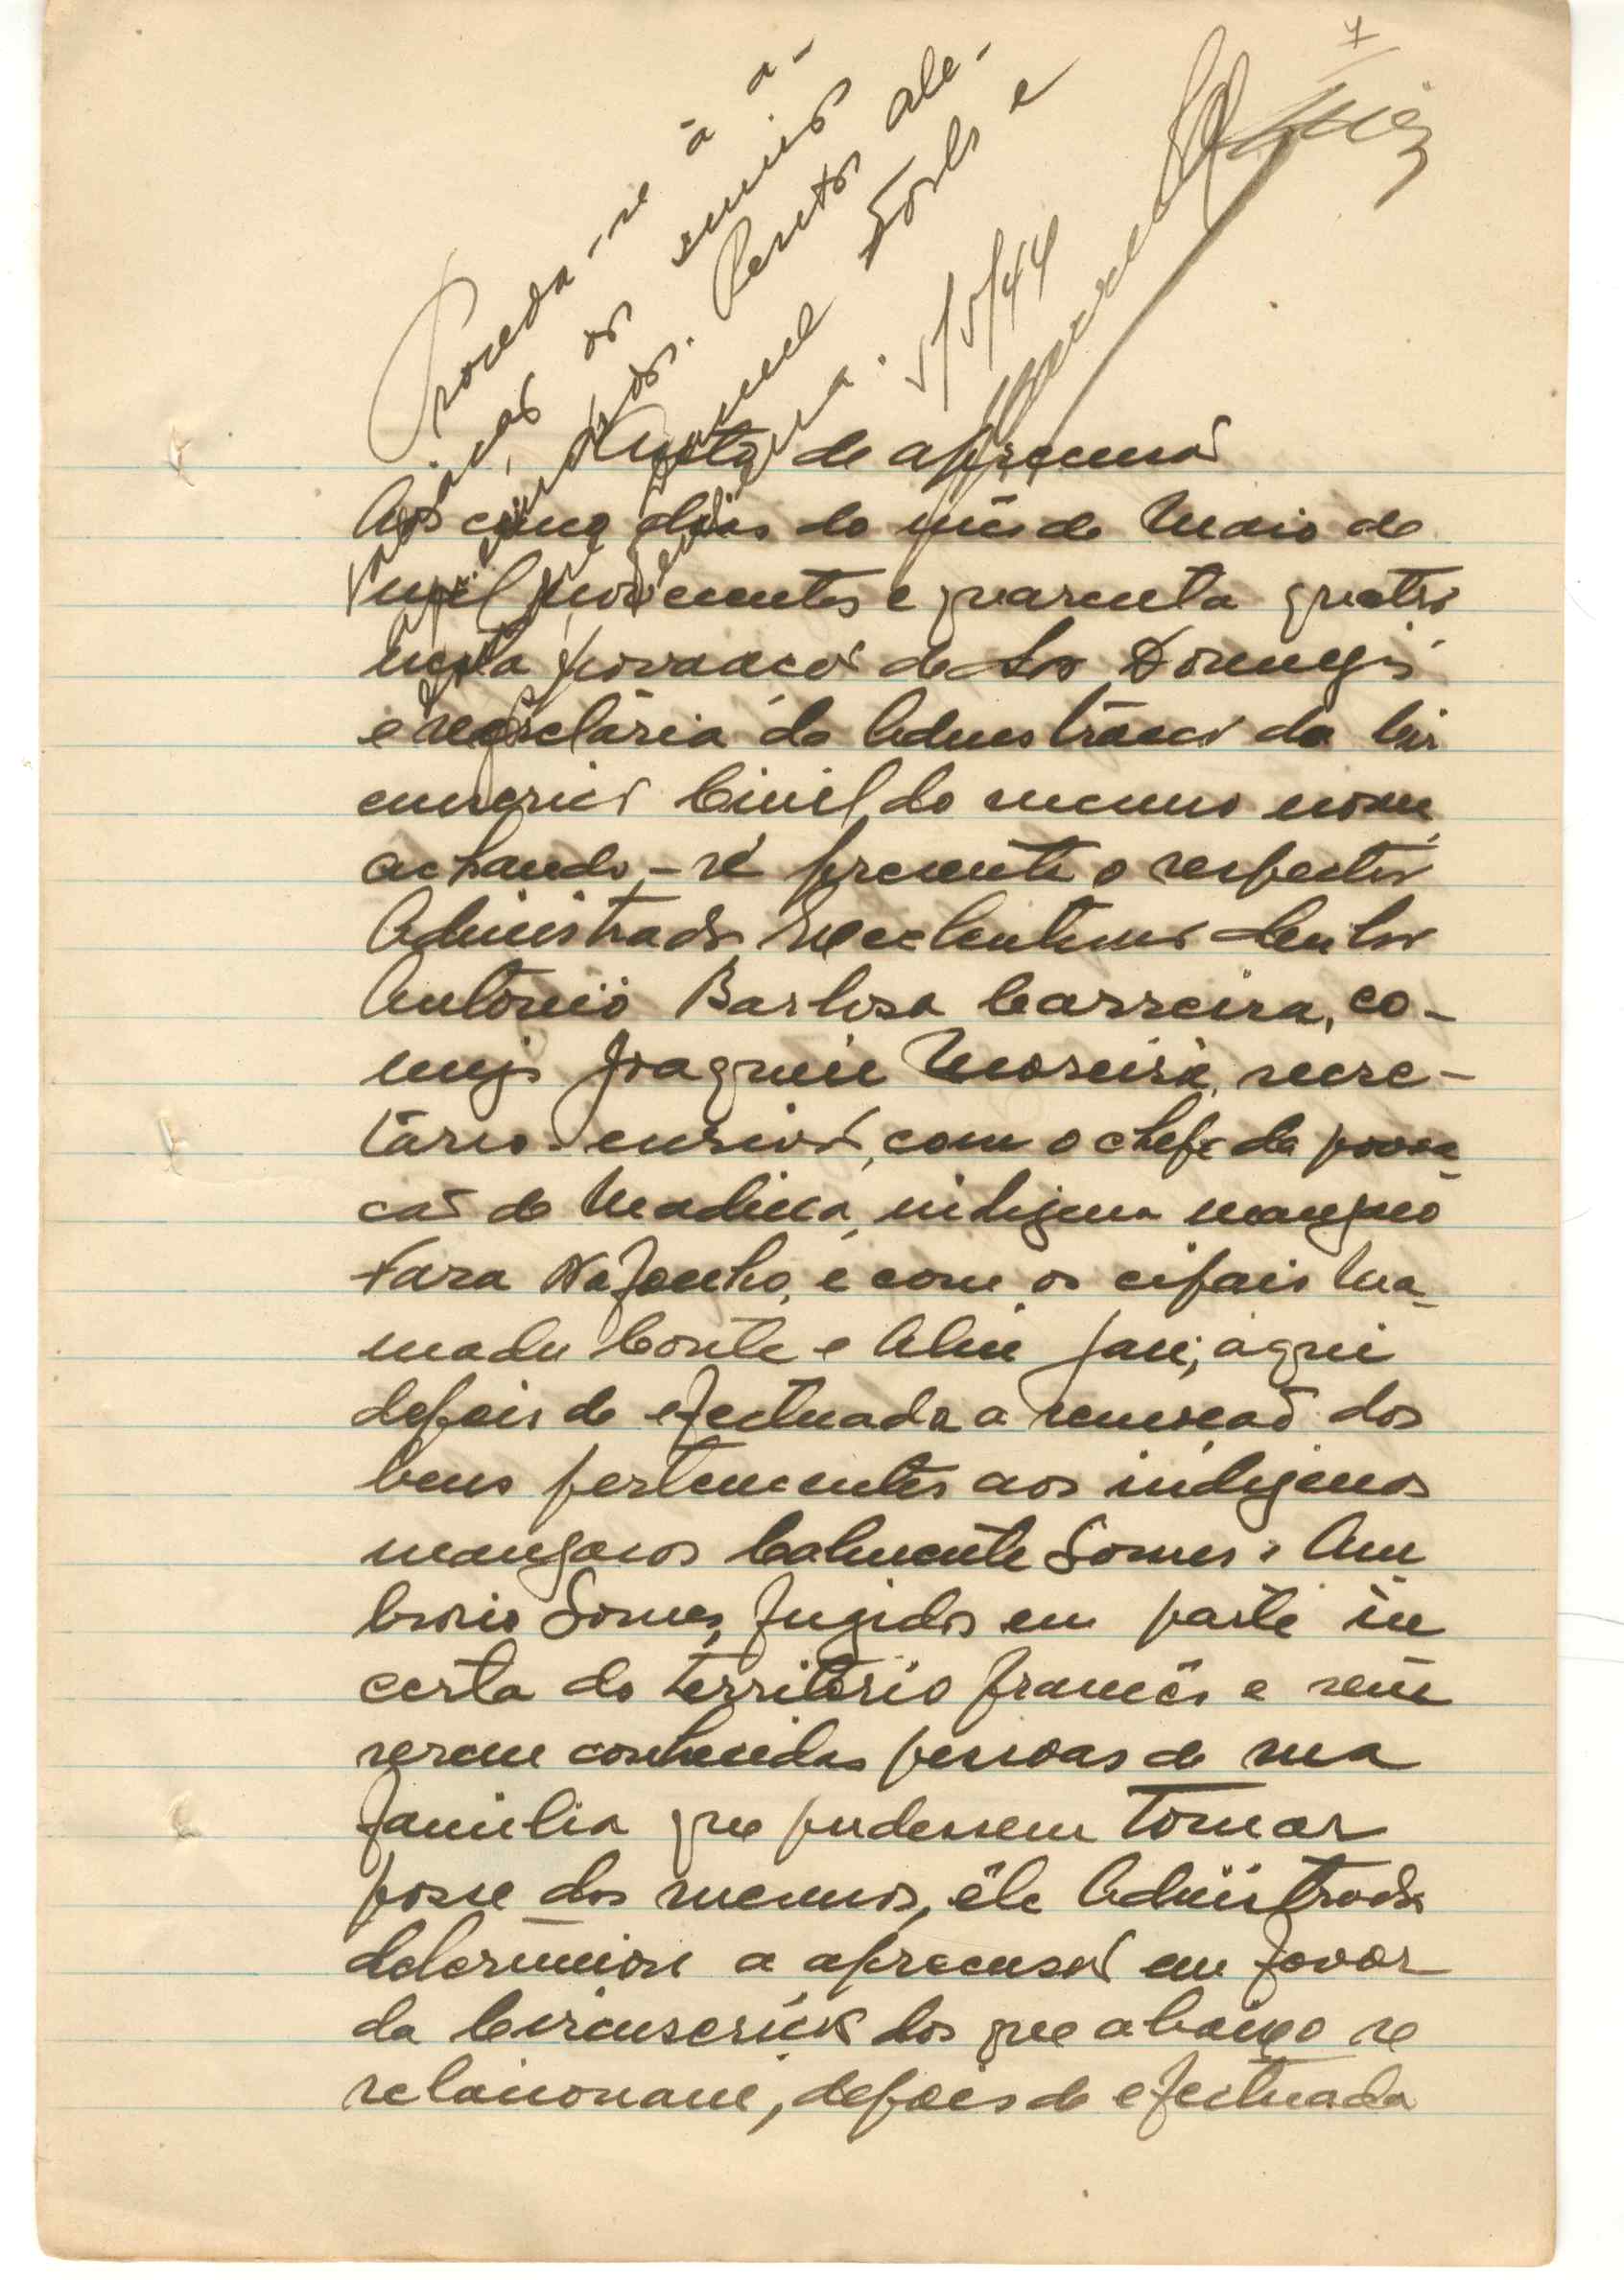 7
Proceda-se à a-
os semis
Peritos ale-
e
5/5/44
Auto de apreensão
Aos cinco dias do mês de Maio de
mil novecentos e quarenta quatro
nesta povoação de São Domingos
e secretaria da Administração da Cir
cunscrição Civil do mesmo nome
achando-se presente o respectivo
Administrador Excelentissimo Senhor
António Barbosa Carreira, co-
migo Joaquim Moreira, secre-
tário-escrivão, com o chefe da povoa-
ção de Madina, indigena manjaco
e com os cipais Ma-
madu Conté e Aliu Jau, aqui
depois de efectuada a remoção dos
bens pertencentes aos indigenas
manjacos Calmente Gomes e Am
brosio Gomes, fugidos em parte in
certa do território francês e sem
serem conhecidas pessoas de sua
familia que pudessem tomar
posse dos mesmos, êle Administrador
determinou a apreensão em favor
da Circunscrição dos que abaixo se
relacionam, depois de efectuada